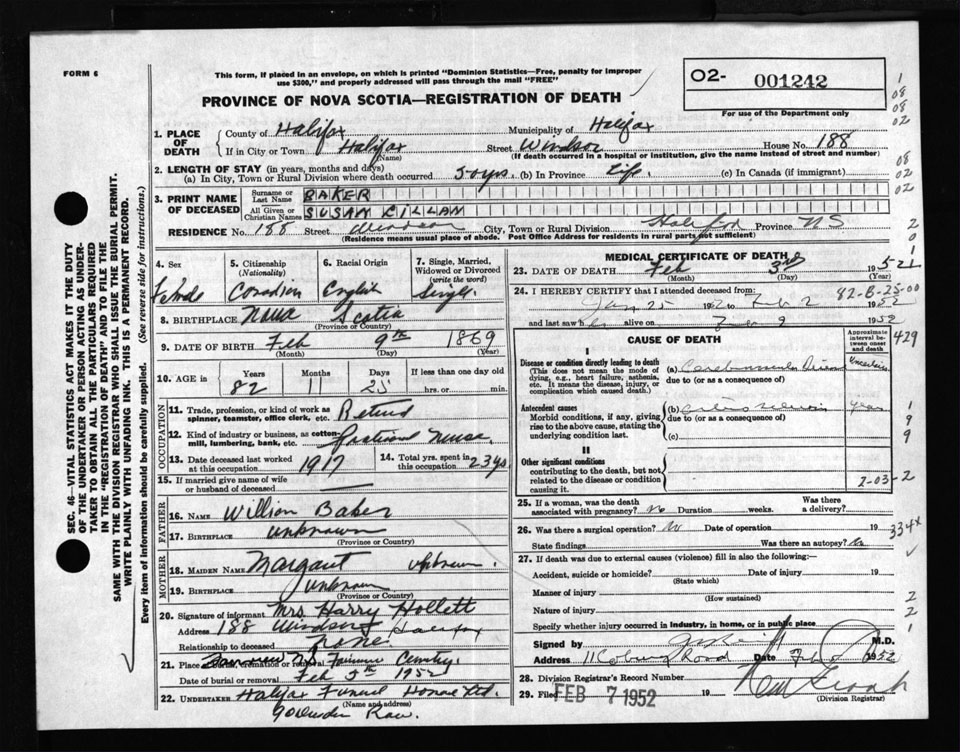 FORM 6
This form, if placed in an envelope, on which is printed "Dominion Statistics—Free, penalty for improper
use $300," and properly addressed will pass through the mail "FREE"
O2- 001242
For use of the Department only
PROVINCE OF NOVA SCOTIA—REGISTRATION OF DEATH
1. PLACE OF DEATH
County of Halifax Municipality of Halifax
If in City or Town Halifax Street Windsor House No. 188
(Name) (If death occurred in a hospital or institution, give the name instead of street and number)
2. LENGTH OF STAY (in years, months and days)
(a) In City, Town or Rural Division where death occurred 50 yrs. (b) In Province Life. (c) In Canada (if immigrant)
3. PRINT NAME OF DECEASED
Surname or Last Name BAKER
All Given or Christian Names SUSAN LILLAN
RESIDENCE No. 188 Street Windsor City, Town or Rural Division Halifax Province NS
(Residence means usual place of abode. Post Office Address for residents in rural parts not sufficient)
4. Sex Female
5. Citizenship (Nationality) Canadian
6. Racial Origin English
7. Single, Married, Widowed or Divorced (write the word) Single
8. BIRTHPLACE Nova Scotia
(Province or Country)
9. DATE OF BIRTH Feb 9th 1869
(Month) (Day) (Year)
10. AGE in Years Months Days If less than one day old
82 11 25 hrs. or min.
OCCUPATION
11. Trade, profession, or kind of work as spinner, teamster, office clerk, etc. Retired
12. Kind of industry or business, as cotton-mill, lumbering, bank, etc. Practical Nurse
13. Date deceased last worked at this occupation 1917
14. Total yrs. spent in this occupation 23 yrs.
15. If married give name of wife or husband of deceased
FATHER
16. NAME William Baker
17. BIRTHPLACE unknown
(Province or Country)
MOTHER
18. MAIDEN NAME Margaret unknown.
19. BIRTHPLACE unknown
(Province or Country)
20. Signature of informant Mrs. Harry Hollett
Address 188 Windsor Halifax
Relationship to deceased niece.
21. Place of burial, cremation or removal Fairview Cemetry.
Date of burial or removal Feb 5th 1952
22. UNDERTAKER Halifax Funeral Home Ltd.
(Name and address)
90 Row.
MEDICAL CERTIFICATE OF DEATH
23. DATE OF DEATH Feb 3rd 1952
(Month) (Day) (Year)
24. I HEREBY CERTIFY that I attended deceased from:
Jan 25 1952 to Feb 2 1952
and last saw h alive on Feb 1952
82-B-25-00
CAUSE OF DEATH
Approximate interval between onset and death
I
Disease or condition directly leading to death
(This does not mean the mode of dying, e.g., heart failure, asthenia, etc. It means the disease, injury, or complication which caused death.)
(a)
due to (or as a consequence of)
Antecedent causes
Morbid conditions, if any, giving rise to the above cause, stating the underlying condition last.
(b) years
due to (or as a consequence of)
(c)
II
Other significant conditions
contributing to the death, but not related to the disease or condition causing it.
2-03-2
25. If a woman, was the death associated with pregnancy? No Duration weeks. Was there a delivery?
26. Was there a surgical operation? No Date of operation 19
State findings Was there an autopsy? No
334X
27. If death was due to external causes (violence) fill in also the following:—
Accident, suicide or homicide? Date of injury 19
(State which)
Manner of injury
(How sustained)
Nature of injury
Specify whether injury occurred in industry, in home, or in public place
Signed by M.D.
Address 11 Coburg Road Date Feb 1952
28. Division Registrar's Record Number
29. Filed FEB 7 1952 19
(Division Registrar)
SEC. 46—VITAL STATISTICS ACT MAKES IT THE DUTY
OF THE UNDERTAKER OR PERSON ACTING AS UNDER-
TAKER TO OBTAIN ALL THE PARTICULARS REQUIRED
IN THE "REGISTRATION OF DEATH" AND TO FILE THE
SAME WITH THE DIVISION REGISTRAR WHO SHALL ISSUE THE BURIAL PERMIT.
WRITE PLAINLY WITH UNFADING INK. THIS IS A PERMANENT RECORD.
Every item of information should be carefully supplied. (See reverse side for instructions.)